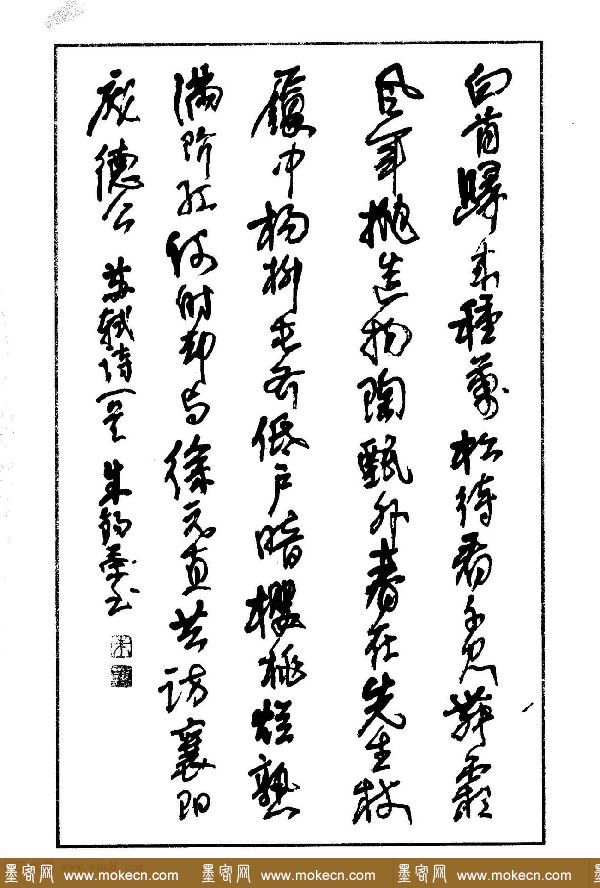 白首歸来種萬松待看千尺舞霜
风年抛造物陶甄外春在先生杖
屦中杨柳长齐低户暗樱桃爛熟
满阶红何时却与徐元直共访襄阳
庞德公 苏轼诗一首 朱锡书
墨客网 www.mokecn.com 墨客网 www.mokecn.com 墨客网 www.mokecn.com